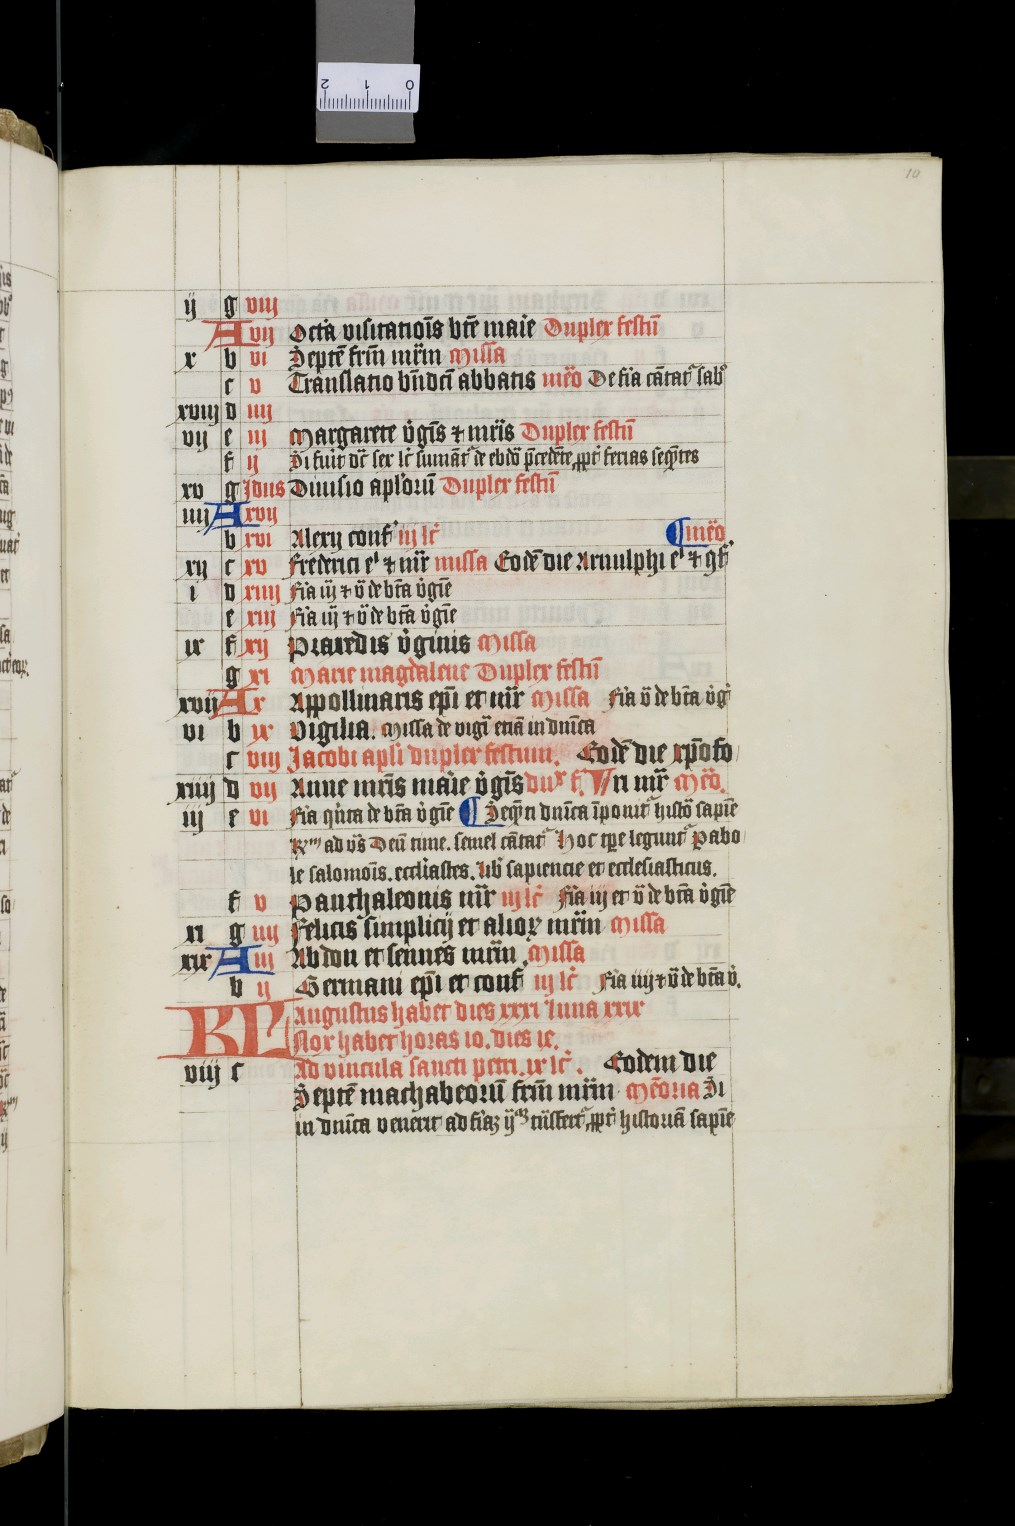 10
ij g viij
A vij Octa᷑ visitatiōis btē maīe Duplex festū
x b vi Septē frm̄ mr̄m Missa
c v Translatio bn̄dc̄i abbatis meō De fīa cātat᷑ sabo
xviij d iiij
vij e iij Margarete v̓gis̄ & mr̄is Duplex festū
f ij Si fuīt dc̄ ser lc̄ sumāt᷑ de ebdō p̄cedēte, ꝓpt̓ ferias seq̄ntes
xv g Idus Diuisio apl̓orū Duplex festū
iiij A xvij
b xvi Alexij conf̓ iij lc̄ ¶ meō.
xij c xv Frederici eͥ & mr̄ missa Eodē die Arnulphi eͥ & 9f̄
i d xiiij Fīa iij & v̄ de bt̄a v̓gīe
e xiij Fīa iij & v̄ de bt̄a v̓gīe
ix f xij Praxedis v̓ginis Missa
g xi Marie magdalene Duplex festū
xvij A x Appollinaris ep̄i et mr̄ Missa Fīa v̄ de bt̄a v̓g̓
vi b ix Vigilia. Missa de vigī etiā in dn̄ica
c viij Jacobi apl̄i duplex festum. Eodē die xp̄ofo
xiiij d vij Anne mr̄is maīe v̓gis̄ duͯ f. Vn mr̄ Meō.
iij e vi Fīa q̓nta de bt̄a v̓gīe ¶ Seq̄n dn̄ica īponit᷑ histō sapīe
ad vs̄ Deū time. semel cātat᷑ Hoc tp̄e legunt᷑ Pabo
le salomōis. eccl̄iastes. lib̓ sapiencie et ecclesiasticus.
f v Panthaleonis mr̄ iij lc̄ Fīa iij et v̄ de bt̄a v̓gīe
xi g iiij Felicis simplicij et alioꝝ mr̄m Missa
xix A iij Abdon et sennes mr̄m, Missa
b ij Germani ep̄i et conf̓ iij lc̄ Fīa iiij & v̄ de bt̄a v̓.
KL Augustus habet dies xxxi luna xxix
Nox habet horas 10. dies 1e.
viij c Ad vincula sancti petri. ix lc̄. Eodem die
Septē machabeorū frm̄ mr̄m Mēoria Si
in dn̄ica venerit ad fīaꝫ ij tn̄sfert᷑, ꝓpt̓ historiā sapīe